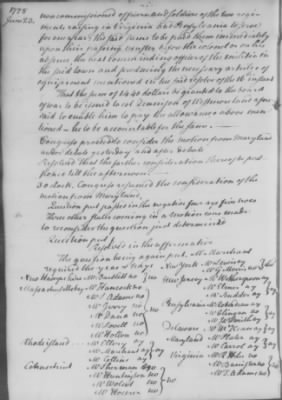 1778
June 23.
non commissioned officers and soldiers of the two
companies raising in Virginia and Pensylvania to serve
for one year; the said sums to be paid them immediately
upon their passing muster before the
commanding officer of the militia in
the said town and producing the necessary articles of
equipment mentioned in the said
That the sum of 1440 dollars be granted to the board
of war to be issued to col Dennison of Westmoreland
to enable him to pay the allowance above mentioned
he to be accountable for the same.
Congress proceeded to consider the motion from Maryland
under debate yesterday and after debate
Resolved that the farther consideration thereof be postponed
till the afternoon.
3 oClock, Congress resumed the consideration of the
motion from Maryland,
Question put passed in the negative four ay five noes
Three other states moving in a motion was made
to reconsider the question just determined
Question put
Resolved in the affirmative
The question being again put, Mr Marchant
required the yeas & nays
New Hampshire Mr Bartlett no } no
Massachusetts bay Mr Hancock no
Mr S Adams no
Mr Gerry no
Mr Dana no
Mr Lovell no
Mr Holten no
} no
Rhode island Mr Ellery ay
Mr Marchant ay
Mr Collins ay
} ay
Connecticut Mr Sherman ay
Mr Huntington no
Mr Wolcot no
Mr Hosmer no
} no
New York Mr Lewis
Mr G Morris no
New Jersey Mr Witherspoon ay
Mr Elmer ay
Mr Scudder ay
Pensylvania
Mr Clingan ay
Mr Smith ay
Delaware Mr McKean ay
Maryland Mr Plater ay
Mr Carrol ay
Virginia Mr R H Lee no
Mr Banister no
Mr T Adams no
} no